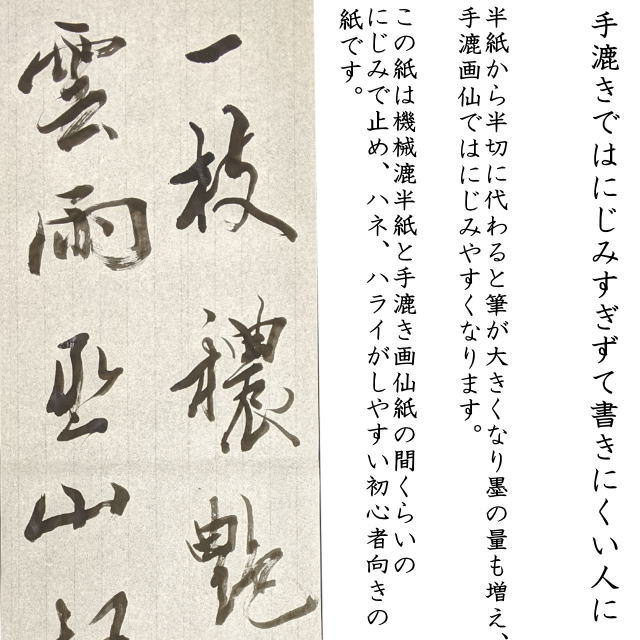 手漉きではにじみすぎずて書きにくい人に
半紙から半切に代わると筆が大きくなり墨の量も増え、
手漉画仙ではにじみやすくなります。
この紙は機械漉半紙と手漉き画仙紙の間くらいの
にじみで止め、ハネ、ハライがしやすい初心者向きの
紙です。
一枝穠艶
雲雨巫山